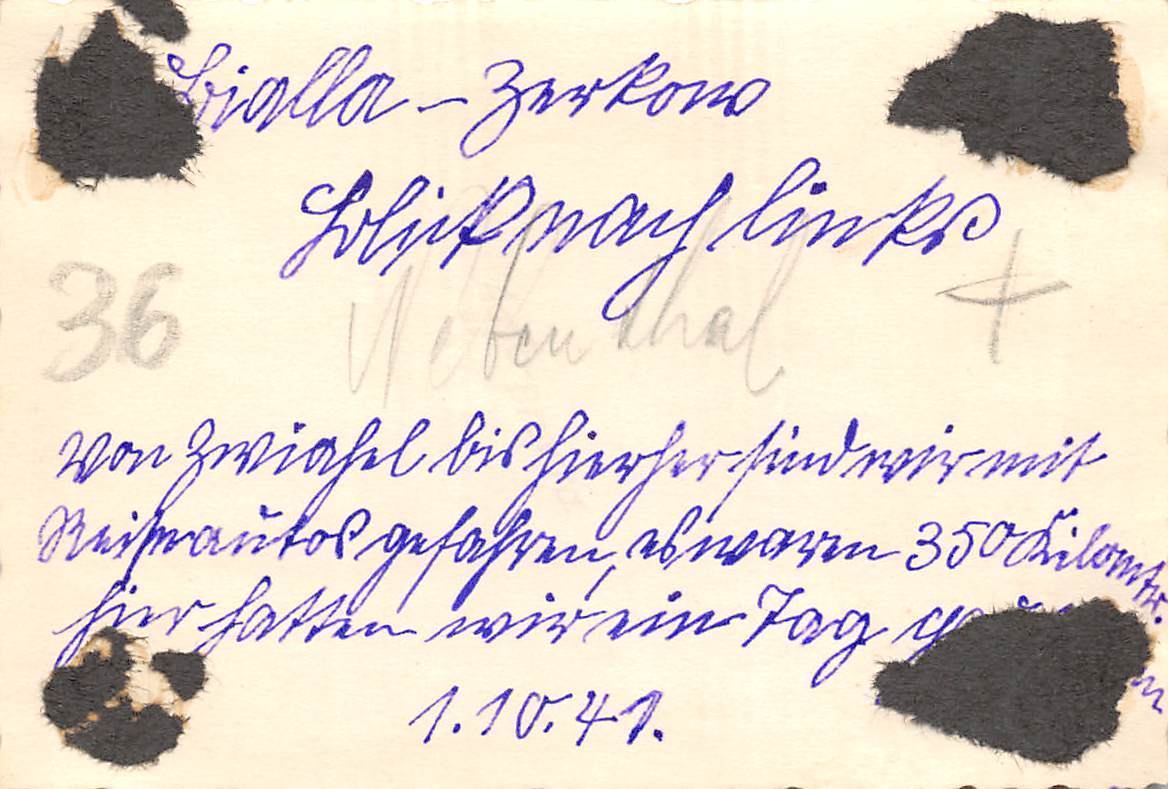 Bialla - Zerkow
Blick nach links
36
Nebenthal
+
Von Zwiahel bis hierher sind wir mit
Reiseautos gefahren, es waren 350 Kilomtr.
hier hatten wir ein Tag
1.10.41.